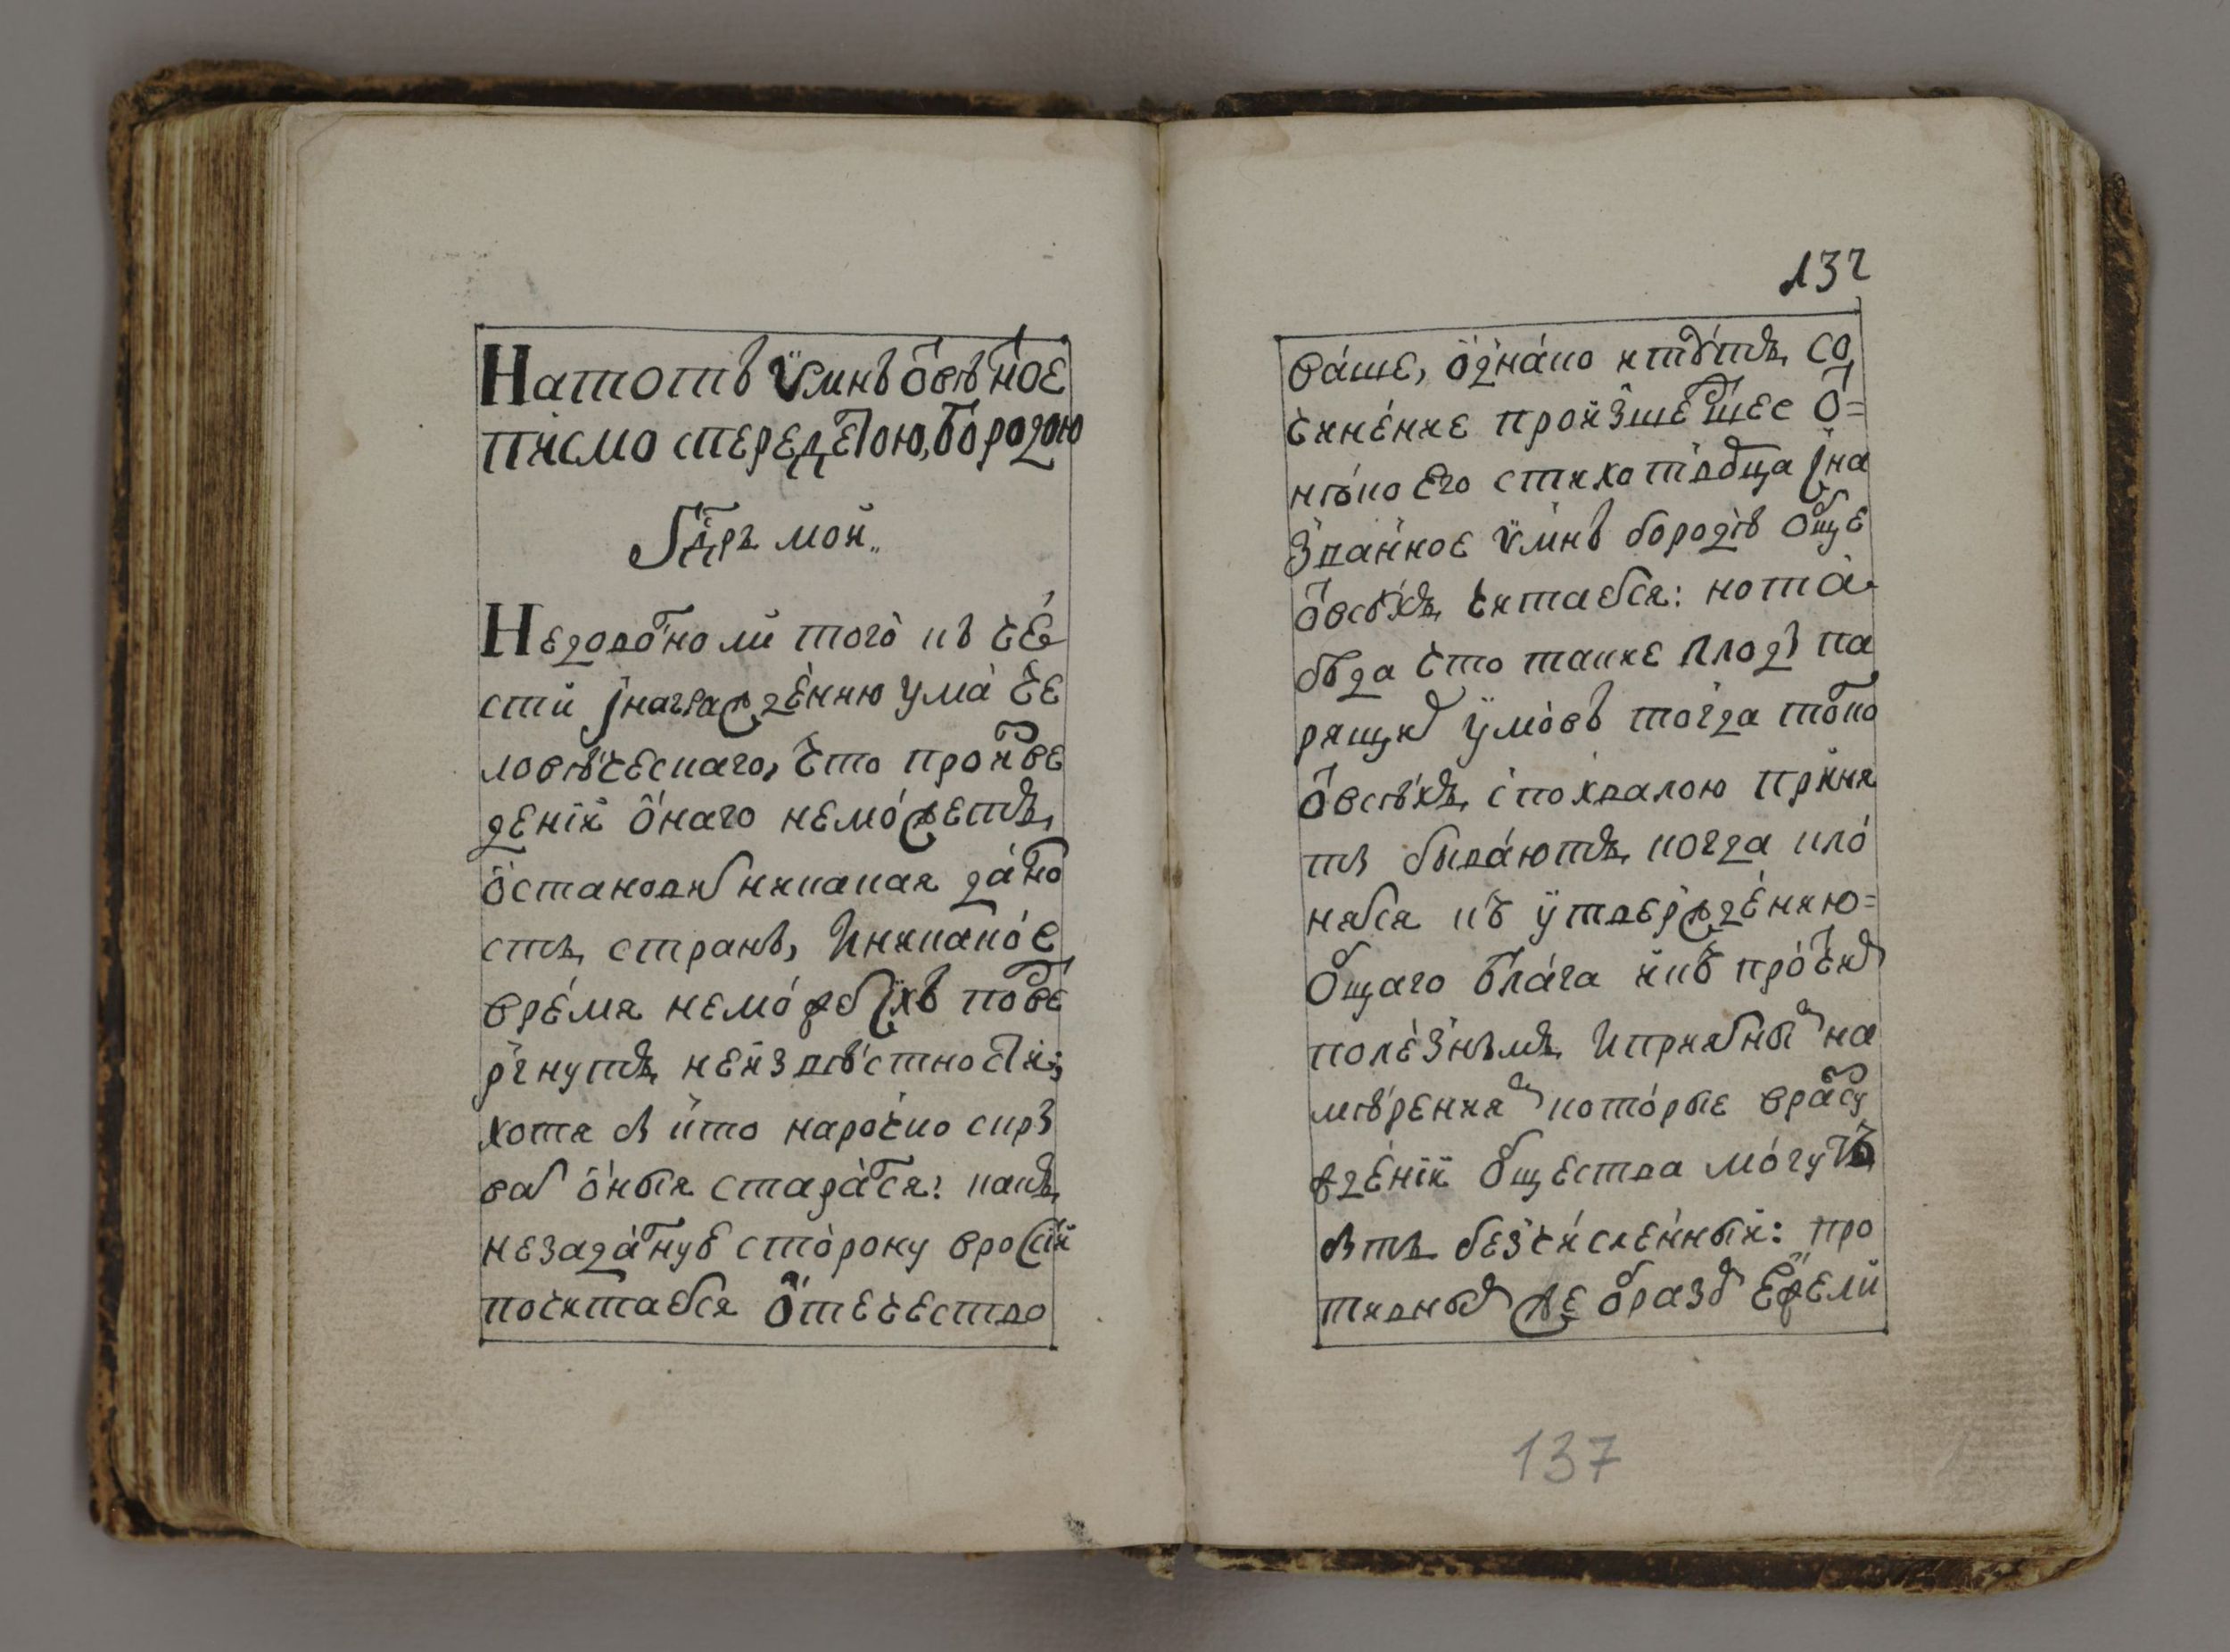 На тотъ ѵмнъ ѿвѣтное
писмо с передетою бородою
Гдрь мой
Недовольно ли того къ че
сти і награждению ума че
ловѣческаго, что произве
деніи онаго неможетъ
остановить никакая дално
сть странъ, и никакое
время неможетъ ихъ пове
ргнуть неизвѣстности;
хотя бъ кто нарочно скрі
вать оныя старался: какъ
незадалную сторону вросіи
почитается отечество
137
ваше, однако и тутъ со
чинение произшедшее ѿ
нѣкоего стихотворца і на
званное ѵмнъ бородѣ обще
ѿ всѣхъ читается: но та
бѣда что такие плоды па
рящихъ умовъ тогда толко
ѿ всѣхъ с похвалою приня
ты бываютъ когда кло
нятся къ утверждению
общаго блага и къ прочимъ
полезнымъ и приятнымъ на
мѣрениямъ которые в разсу
ждении общества могутъ
быть безчисленныи: про
тивнымъ же образомъ ежели
137